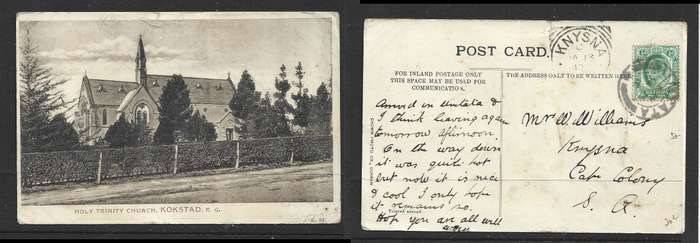 HOLY TRINITY CHURCH, KOKSTAD, E. G.
POST CARD.
KNYSNA
FOR INLAND POSTAGE ONLY
THIS SPACE MAY BE USED FOR
COMMUNICATION.
THE ADDRESS ONLY TO BE WRITTEN HERE
Arrived in Umtata &
I think leaving again
tomorrow afternoon.
On the way down
it was quite hot
but now it is nice
& cool I only hope
it remains so.
Hope you are all well
Mr W. Williams
Knysna
Cape Colony
S. A.